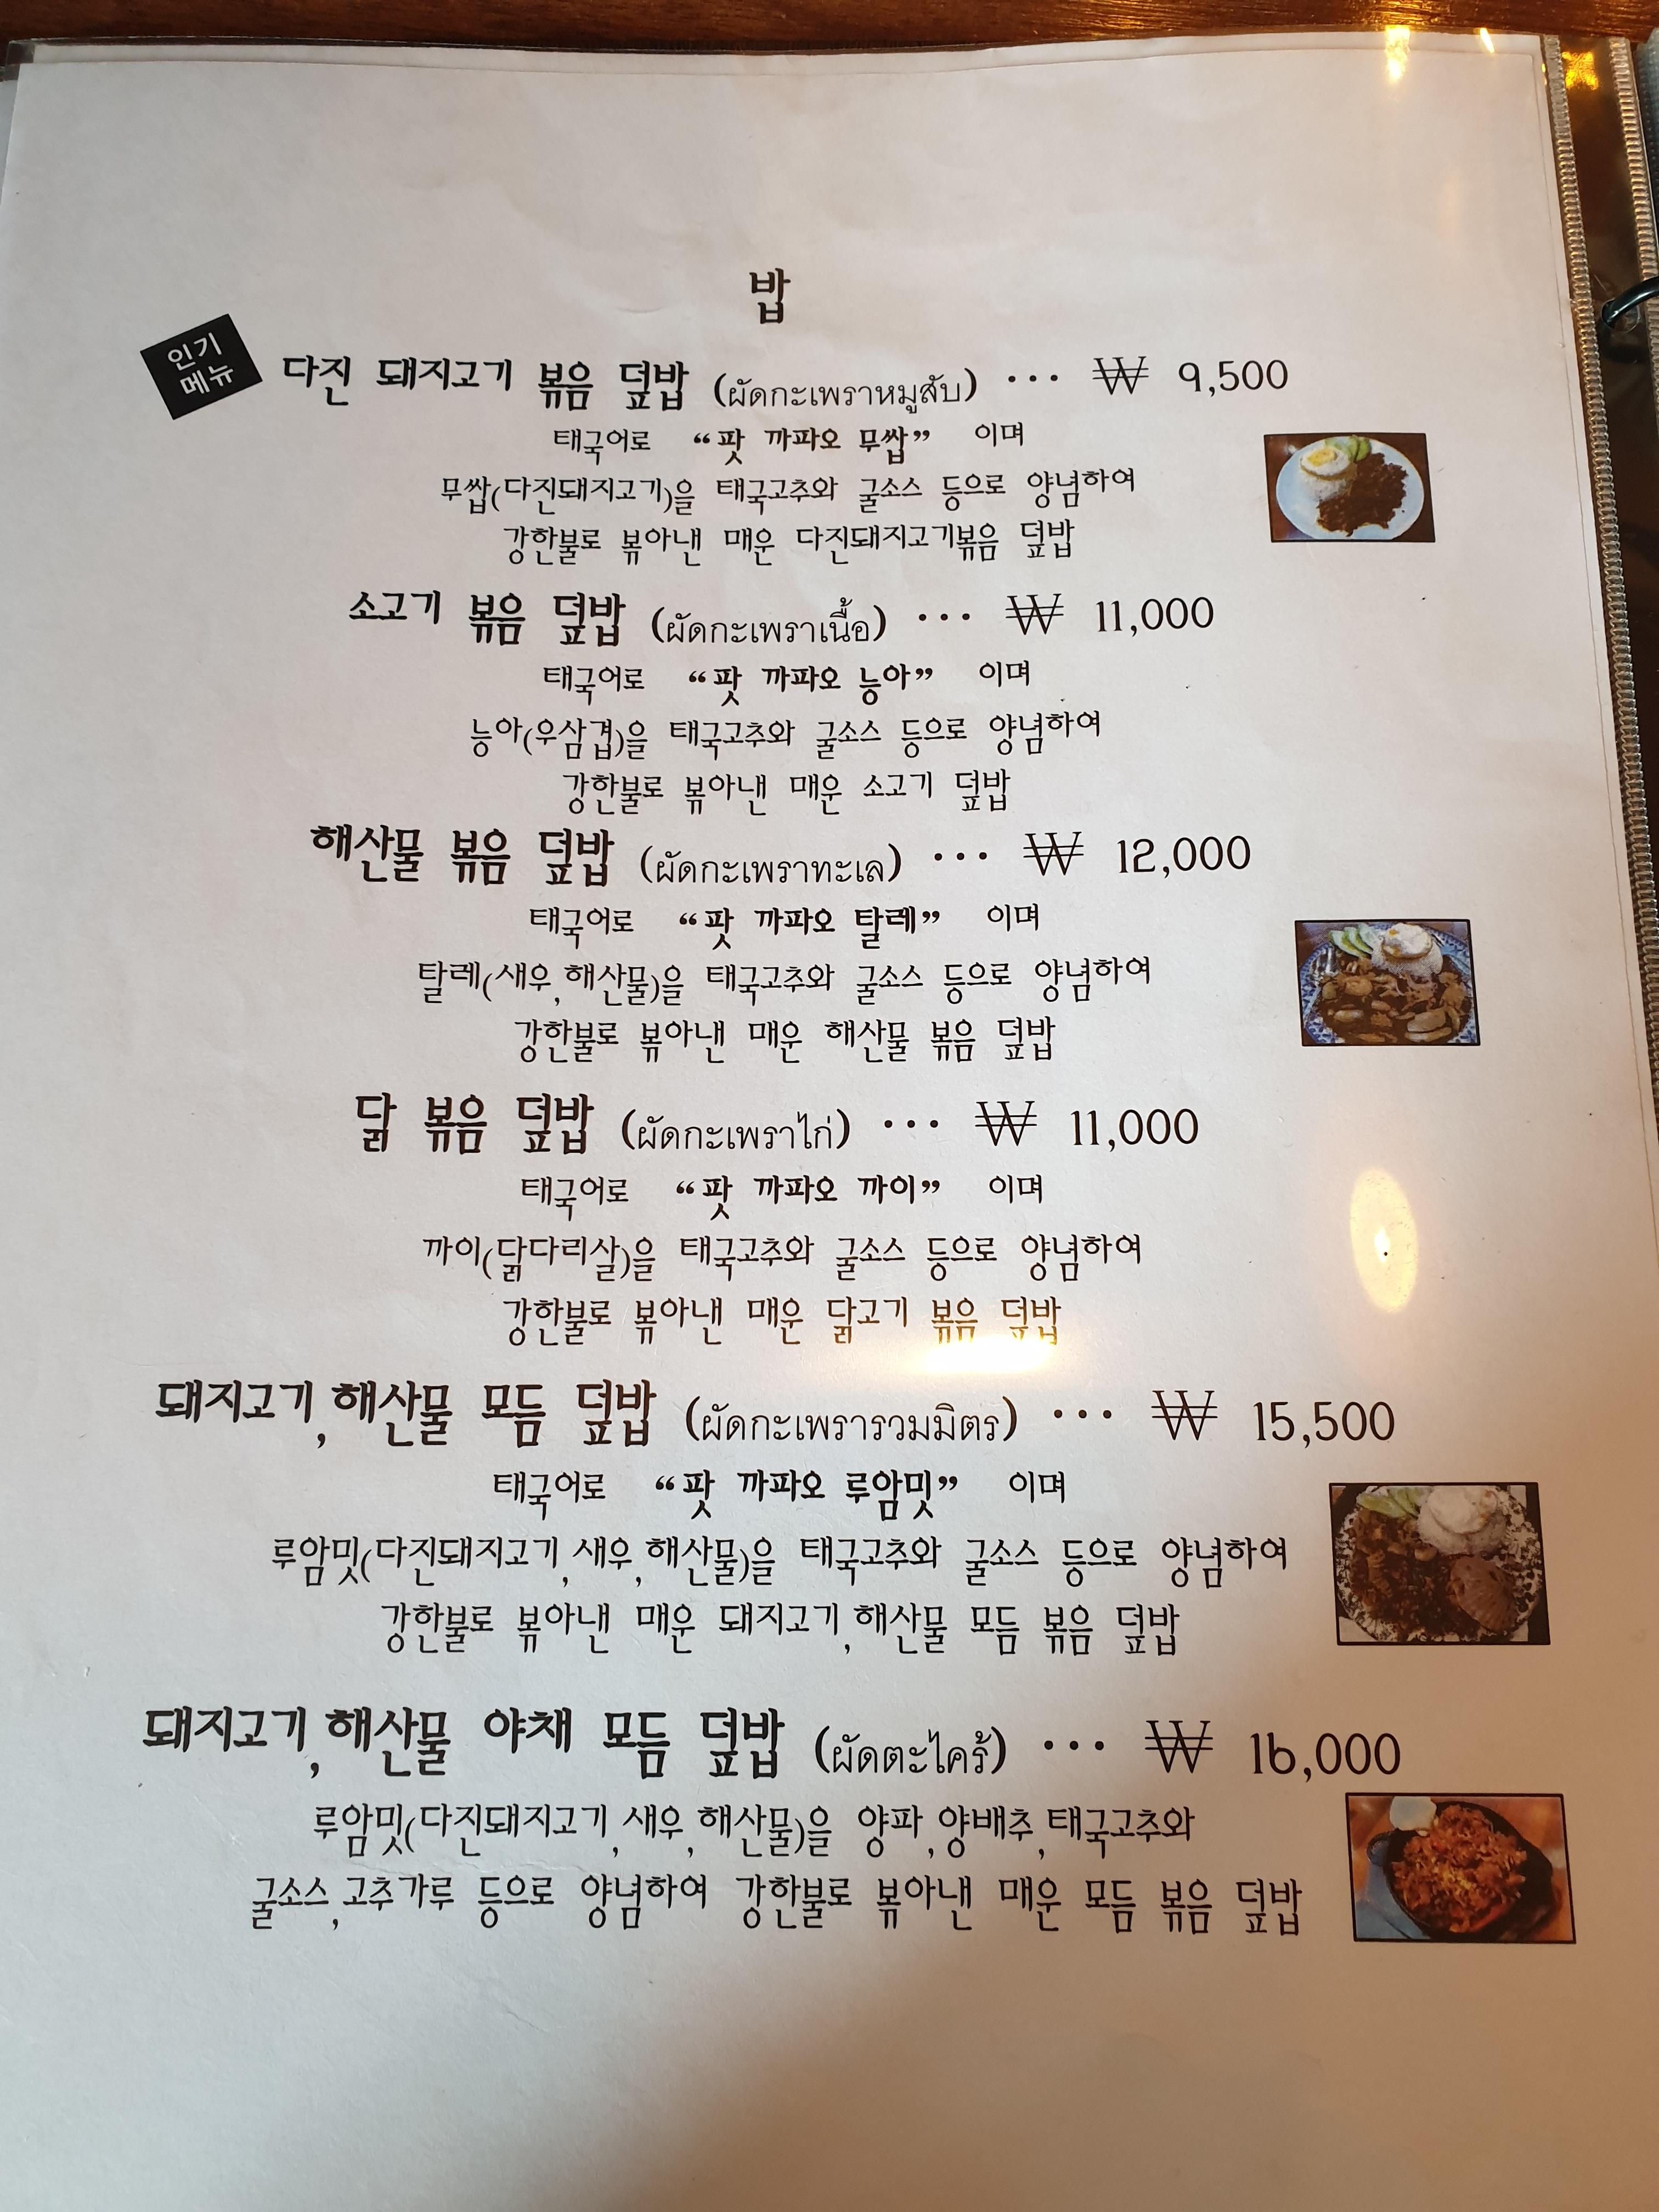 밥
인기
메뉴
다진 돼지고기 볶음 덮밥 (ผัดกะเพราหมูสับ) ··· ₩ 9,500
태국어로 “팟 까파오 무쌉” 이며
무쌉(다진돼지고기)을 태국고추와 굴소스 등으로 양념하여
강한불로 볶아낸 매운 다진돼지고기볶음 덮밥
소고기 볶음 덮밥 (ผัดกะเพราเนื้อ) ··· ₩ 11,000
태국어로 “팟 까파오 능아” 이며
능아(우삼겹)을 태국고추와 굴소스 등으로 양념하여
강한불로 볶아낸 매운 소고기 덮밥
해산물 볶음 덮밥 (ผัดกะเพราทะเล) ··· ₩ 12,000
태국어로 “팟 까파오 탈레” 이며
탈레(새우,해산물)을 태국고추와 굴소스 등으로 양념하여
강한불로 볶아낸 매운 해산물 볶음 덮밥
닭 볶음 덮밥 (ผัดกะเพราไก่) ··· ₩ 11,000
태국어로 “팟 까파오 까이” 이며
까이(닭다리살)을 태국고추와 굴소스 등으로 양념하여
강한불로 볶아낸 매운 닭고기 볶음 덮밥
돼지고기,해산물 모듬 덮밥 (ผัดกะเพรารวมมิตร) ··· ₩ 15,500
태국어로 “팟 까파오 루암밋” 이며
루암밋(다진돼지고기,새우,해산물)을 태국고추와 굴소스 등으로 양념하여
강한불로 볶아낸 매운 돼지고기,해산물 모듬 볶음 덮밥
돼지고기,해산물 야채 모듬 덮밥 (ผัดตะไคร้) ··· ₩ 16,000
루암밋(다진돼지고기,새우,해산물)을 양파,양배추,태국고추와
굴소스,고추가루 등으로 양념하여 강한불로 볶아낸 매운 모듬 볶음 덮밥